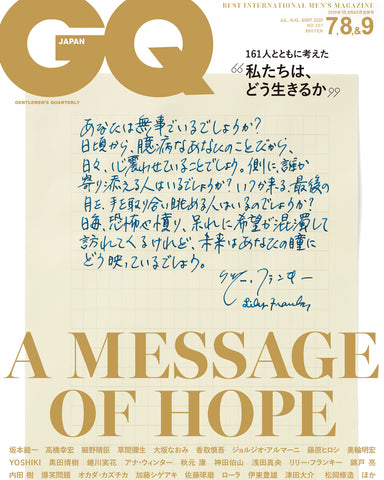 BEST INTERNATIONAL MEN'S MAGAZINE
GQ
JAPAN
GENTLEMEN'S QUARTERLY
7,8,&9
161人とともに考えた
“私たちは、
どう生きるか”
あなたは無事でいるでしょうか?
日頃から、臆病なあなたのことだから、
日々、心震わせていることでしょう。側に、誰か
寄り添える人はいるでしょうか? いつか来る、最後の
日に、手を取り合い眺める人はいるのでしょうか?
日毎、恐怖や憤り、呆れに希望が混濁して
訪れてくるけれど、未来はあなたの瞳に
どう映っているでしょう。
リリー・フランキー
Lily Franky
A MESSAGE
OF HOPE
坂本龍一 高橋幸宏 細野晴臣 草間彌生 大坂なおみ 香取慎吾 ジョルジオ・アルマーニ 藤原ヒロシ 美輪明宏
YOSHIKI 黒田博樹 蜷川実花 アナ・ウィンター 秋元 康 神田伯山 浅田真央 リリー・フランキー 錦戸 亮
内田 樹 爆笑問題 オカダ・カズチカ 加藤シゲアキ 佐藤琢磨 ローラ 伊東豊雄 津田大介 松岡修造 ほか